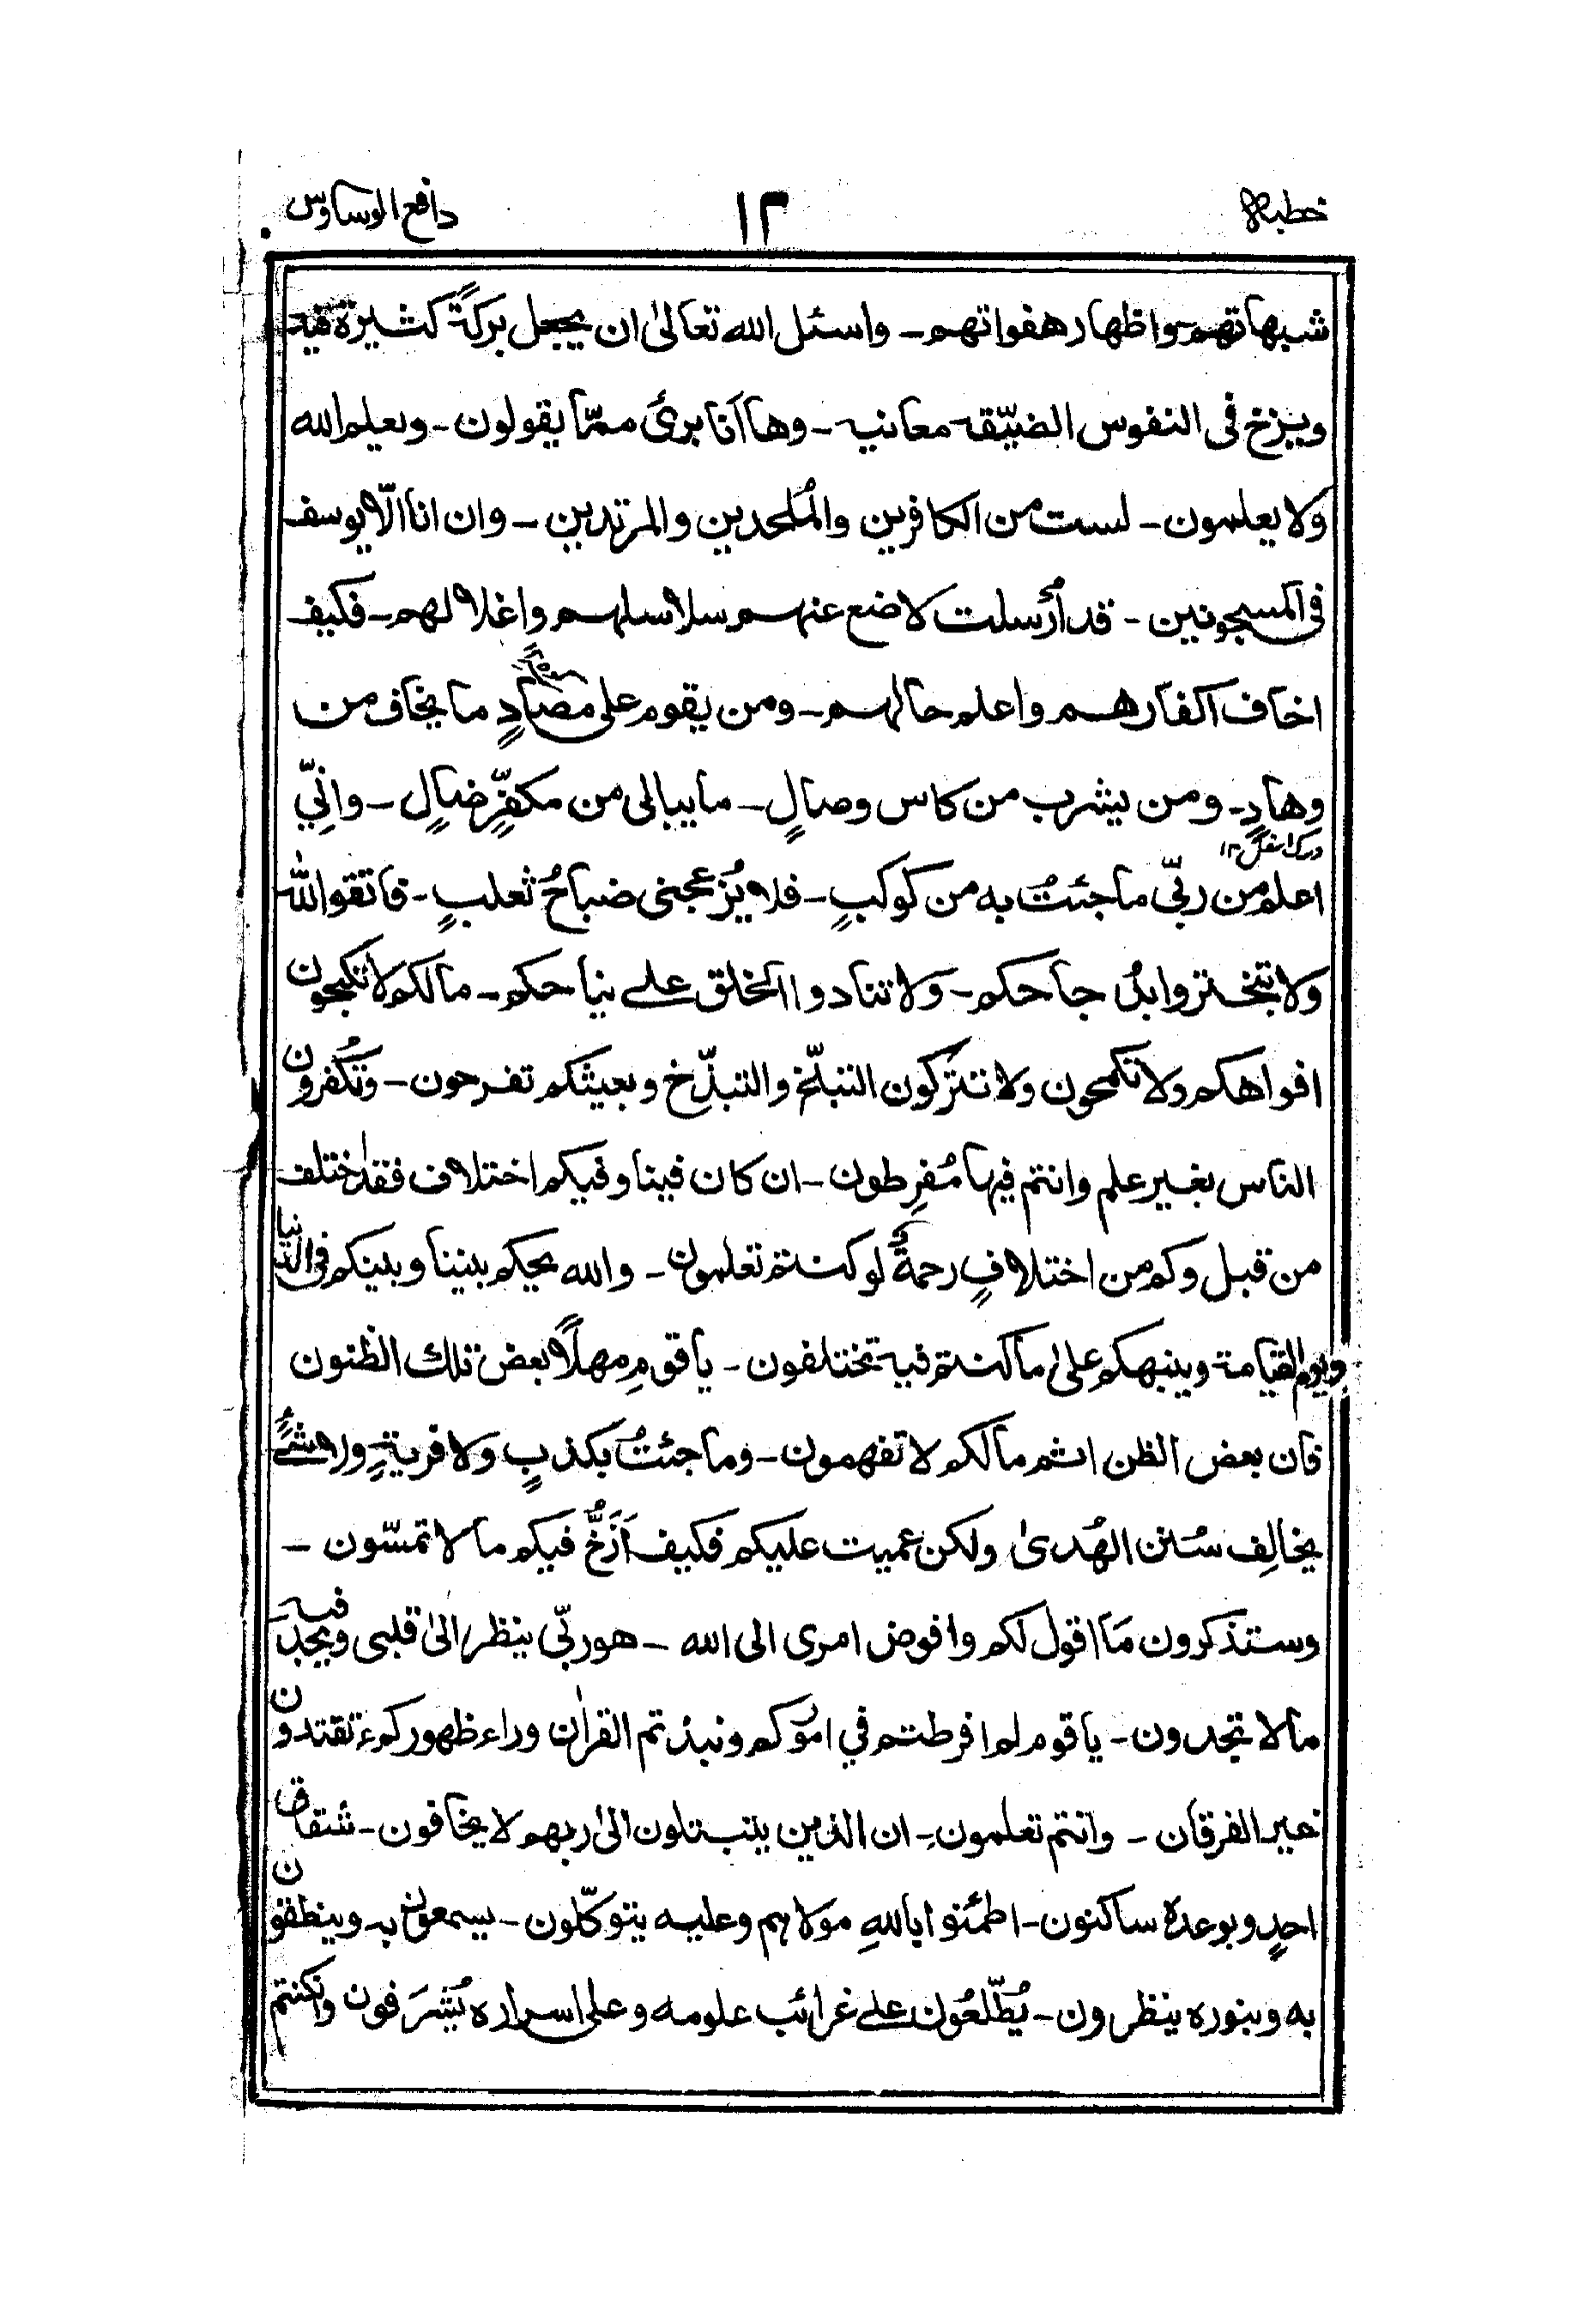 خطبہ
١٢
دافع الوساوس
شبهاتهم واظهار هفواتهم - واسئل الله تعالىٰ ان يجعل بركةً كثيرة فيه
ويزخ فى النفوس الضيّقة معانيه - وها اَنا برئ ممّا يقولون - ويعلم الله
ولا يعلمون - لست من الكافرين والمُلحدين والمرتدين - وان انا الّا يوسف
فى المسجونين - قد اُرسلت لاضع عنهم سلاسلهم واغلالهم - فكيف
اخاف اكفارهم واعلم حالهم - ومن يقوم على مصادٍ ما يخاف من
وهادٍ - ومن يشرب من كاس وصالٍ - ما يبالى من مكفّرٍ ضالٍ - وانِّي
درک اسفل ١٢
اعلم من ربّى ما جئتُ به من كوكبٍ - فلا يُزعجنى ضباحُ ثعلبٍ - فاتقوا الله
ولا تتخنتروا بدُ جاحكم - ولا تنادوا الخلق علے نياحكم - مالكم لا تكبحون
افواهكم ولا تكمحون ولا تتركون التبلّخ والتبذّخ وبعيثكم تفرحون - وتُكفرون
الناس بغير علم وانتم فيها مُفرِطون - ان كان فينا وفيكم اختلاف فقد اختلف
من قبل وكم من اختلافٍ رحمةٌ لو كنتم تعلمون - والله يحكم بيننا وبينكم فى الدنيا
ويوم القيامة وينبهكم علىٰ ما كنتم فيه تختلفون - يا قومِ مهلًا بعض تلك الظنون
فان بعض الظن اثم مالكم لا تفهمون - وما جئتُ بكذبٍ ولا فريةٍ ولا شئٍ
يخالِف سُنن الهُدىٰ ولكن عميت عليكم فكيف اَزُخُّ فيكم ما لا تمسّون -
وستذكرون مَا اقول لكم وافوض امرى الى الله - هو ربّى ينظر الىٰ قلبى ويجد فيه
ما لا تجدون - يا قوم لم افرطتم في اموركم ونبذتم القراٰن وراء ظهوركم ءتقتدون
غير الفرقان - وانتم تعلمون - ان الذين يتبتلون الىٰ ربهم لا يخافون - شقاق
احدٍ وبوعدة ساكنون - اطمئنوا باللهِ مولاهم وعليه يتوكّلون - يسمعون به وينطقون
به وبنوره ينظرون - يُطّلعُون علے غرائب علومه وعلى اسراره يُشرَفون وان كنتم